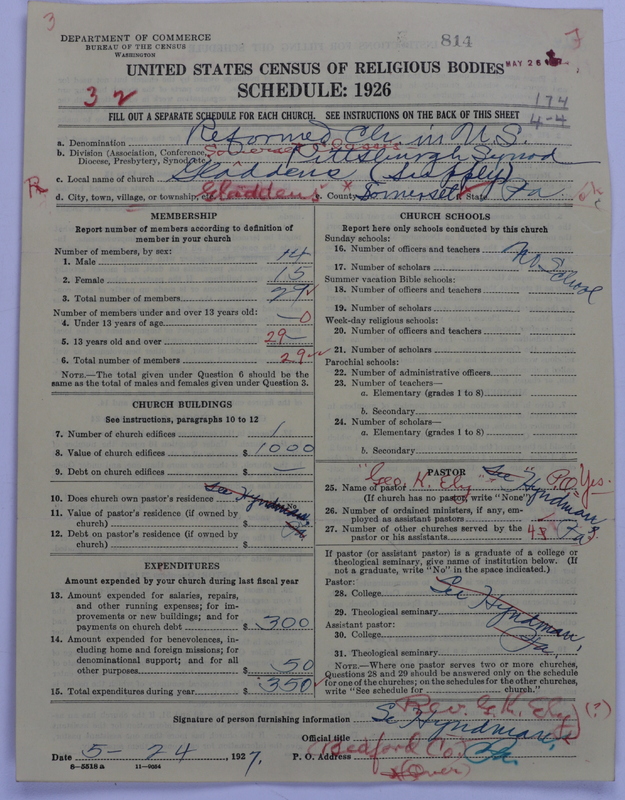 3
DEPARTMENT OF COMMERCE
BUREAU OF THE CENSUS
WASHINGTON
814
MAY 26
UNITED STATES CENSUS OF RELIGIOUS BODIES
SCHEDULE: 1926
3 2
174
4-4
FILL OUT A SEPARATE SCHEDULE FOR EACH CHURCH. SEE INSTRUCTIONS ON THE BACK OF THIS SHEET
a. Denomination Reformed Ch in U.S.
b. Division (Association, Conference, Diocese, Presbytery, Synod, etc.) Pittsburgh Synod
c. Local name of church Gladdens (Supply)
d. City, town, village, or township, Gladdens * e. County Somerset f. State Pa.
MEMBERSHIP
Report number of members according to definition of member in your church
Number of members, by sex:
1. Male 14
2. Female 15
3. Total number of members 29
Number of members under and over 13 years old:
4. Under 13 years of age 0
5. 13 years old and over 29
6. Total number of members 29
NOTE.—The total given under Question 6 should be the same as the total of males and females given under Question 3.
CHURCH BUILDINGS
See instructions, paragraphs 10 to 12
7. Number of church edifices 1
8. Value of church edifices $ 1000
9. Debt on church edifices $ —
10. Does church own pastor's residence See Hyndman, Pa
11. Value of pastor's residence (if owned by church) $
12. Debt on pastor's residence (if owned by church) $
EXPENDITURES
Amount expended by your church during last fiscal year
13. Amount expended for salaries, repairs, and other running expenses; for improvements or new buildings; and for payments on church debt $ 300
14. Amount expended for benevolences, including home and foreign missions; for denominational support; and for all other purposes $ 50
15. Total expenditures during year $ 350
CHURCH SCHOOLS
Report here only schools conducted by this church
Sunday schools:
16. Number of officers and teachers No S School
17. Number of scholars
Summer vacation Bible schools:
18. Number of officers and teachers
19. Number of scholars
Week-day religious schools:
20. Number of officers and teachers
21. Number of scholars
Parochial schools:
22. Number of administrative officers
23. Number of teachers—
a. Elementary (grades 1 to 8)
b. Secondary
24. Number of scholars—
a. Elementary (grades 1 to 8)
b. Secondary
PASTOR
25. Name of pastor "Geo. K. Ely" See Hyndman, Pa Yes.
(If church has no pastor, write "None")
26. Number of ordained ministers, if any, employed as assistant pastors
27. Number of other churches served by the pastor or his assistants 4
If pastor (or assistant pastor) is a graduate of a college or theological seminary, give name of institution below. (If not a graduate, write "No" in the space indicated.)
Pastor:
28. College See Hyndman, Pa.
29. Theological seminary
Assistant pastor:
30. College
31. Theological seminary
NOTE.—Where one pastor serves two or more churches, Questions 28 and 29 should be answered only on the schedule for one of the churches; on the schedules for the other churches, write "See schedule for church."
Signature of person furnishing information Rev. G. K. Ely (?)
Official title See Hyndman,
Date 5-24, 1927. P. O. Address (Bedford Co) Pa.
*(Over)
8-5518a 11-9034